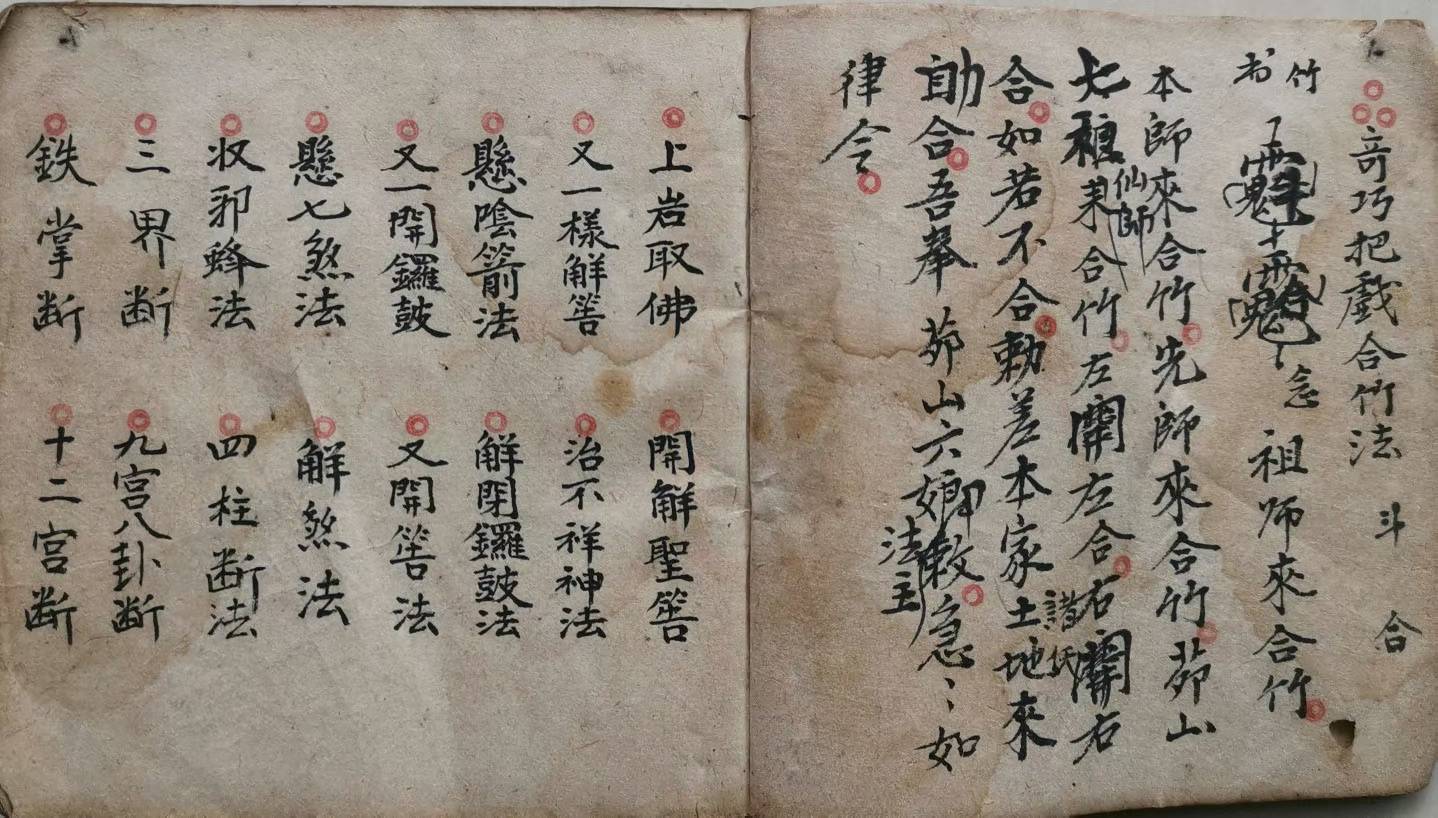 奇巧把戲合竹法 斗 合
竹 书
念 祖师來合竹
本師來合竹先師來合竹茆山
七 仙師 合竹左關左合右關右
合如若不合勅差本家土地來
助合吾奉茆山六娘 法主 敕急〻如
律令
上岩取佛 開解聖筶
又一樣解筶 治不祥神法
懸陰箭法 解閉鑼鼓法
又一開鑼鼓 又開筶法
懸七煞法 解煞法
收邪蜂法 四柱断法
三界断 九宫八卦断
鉄掌断 十二宫断